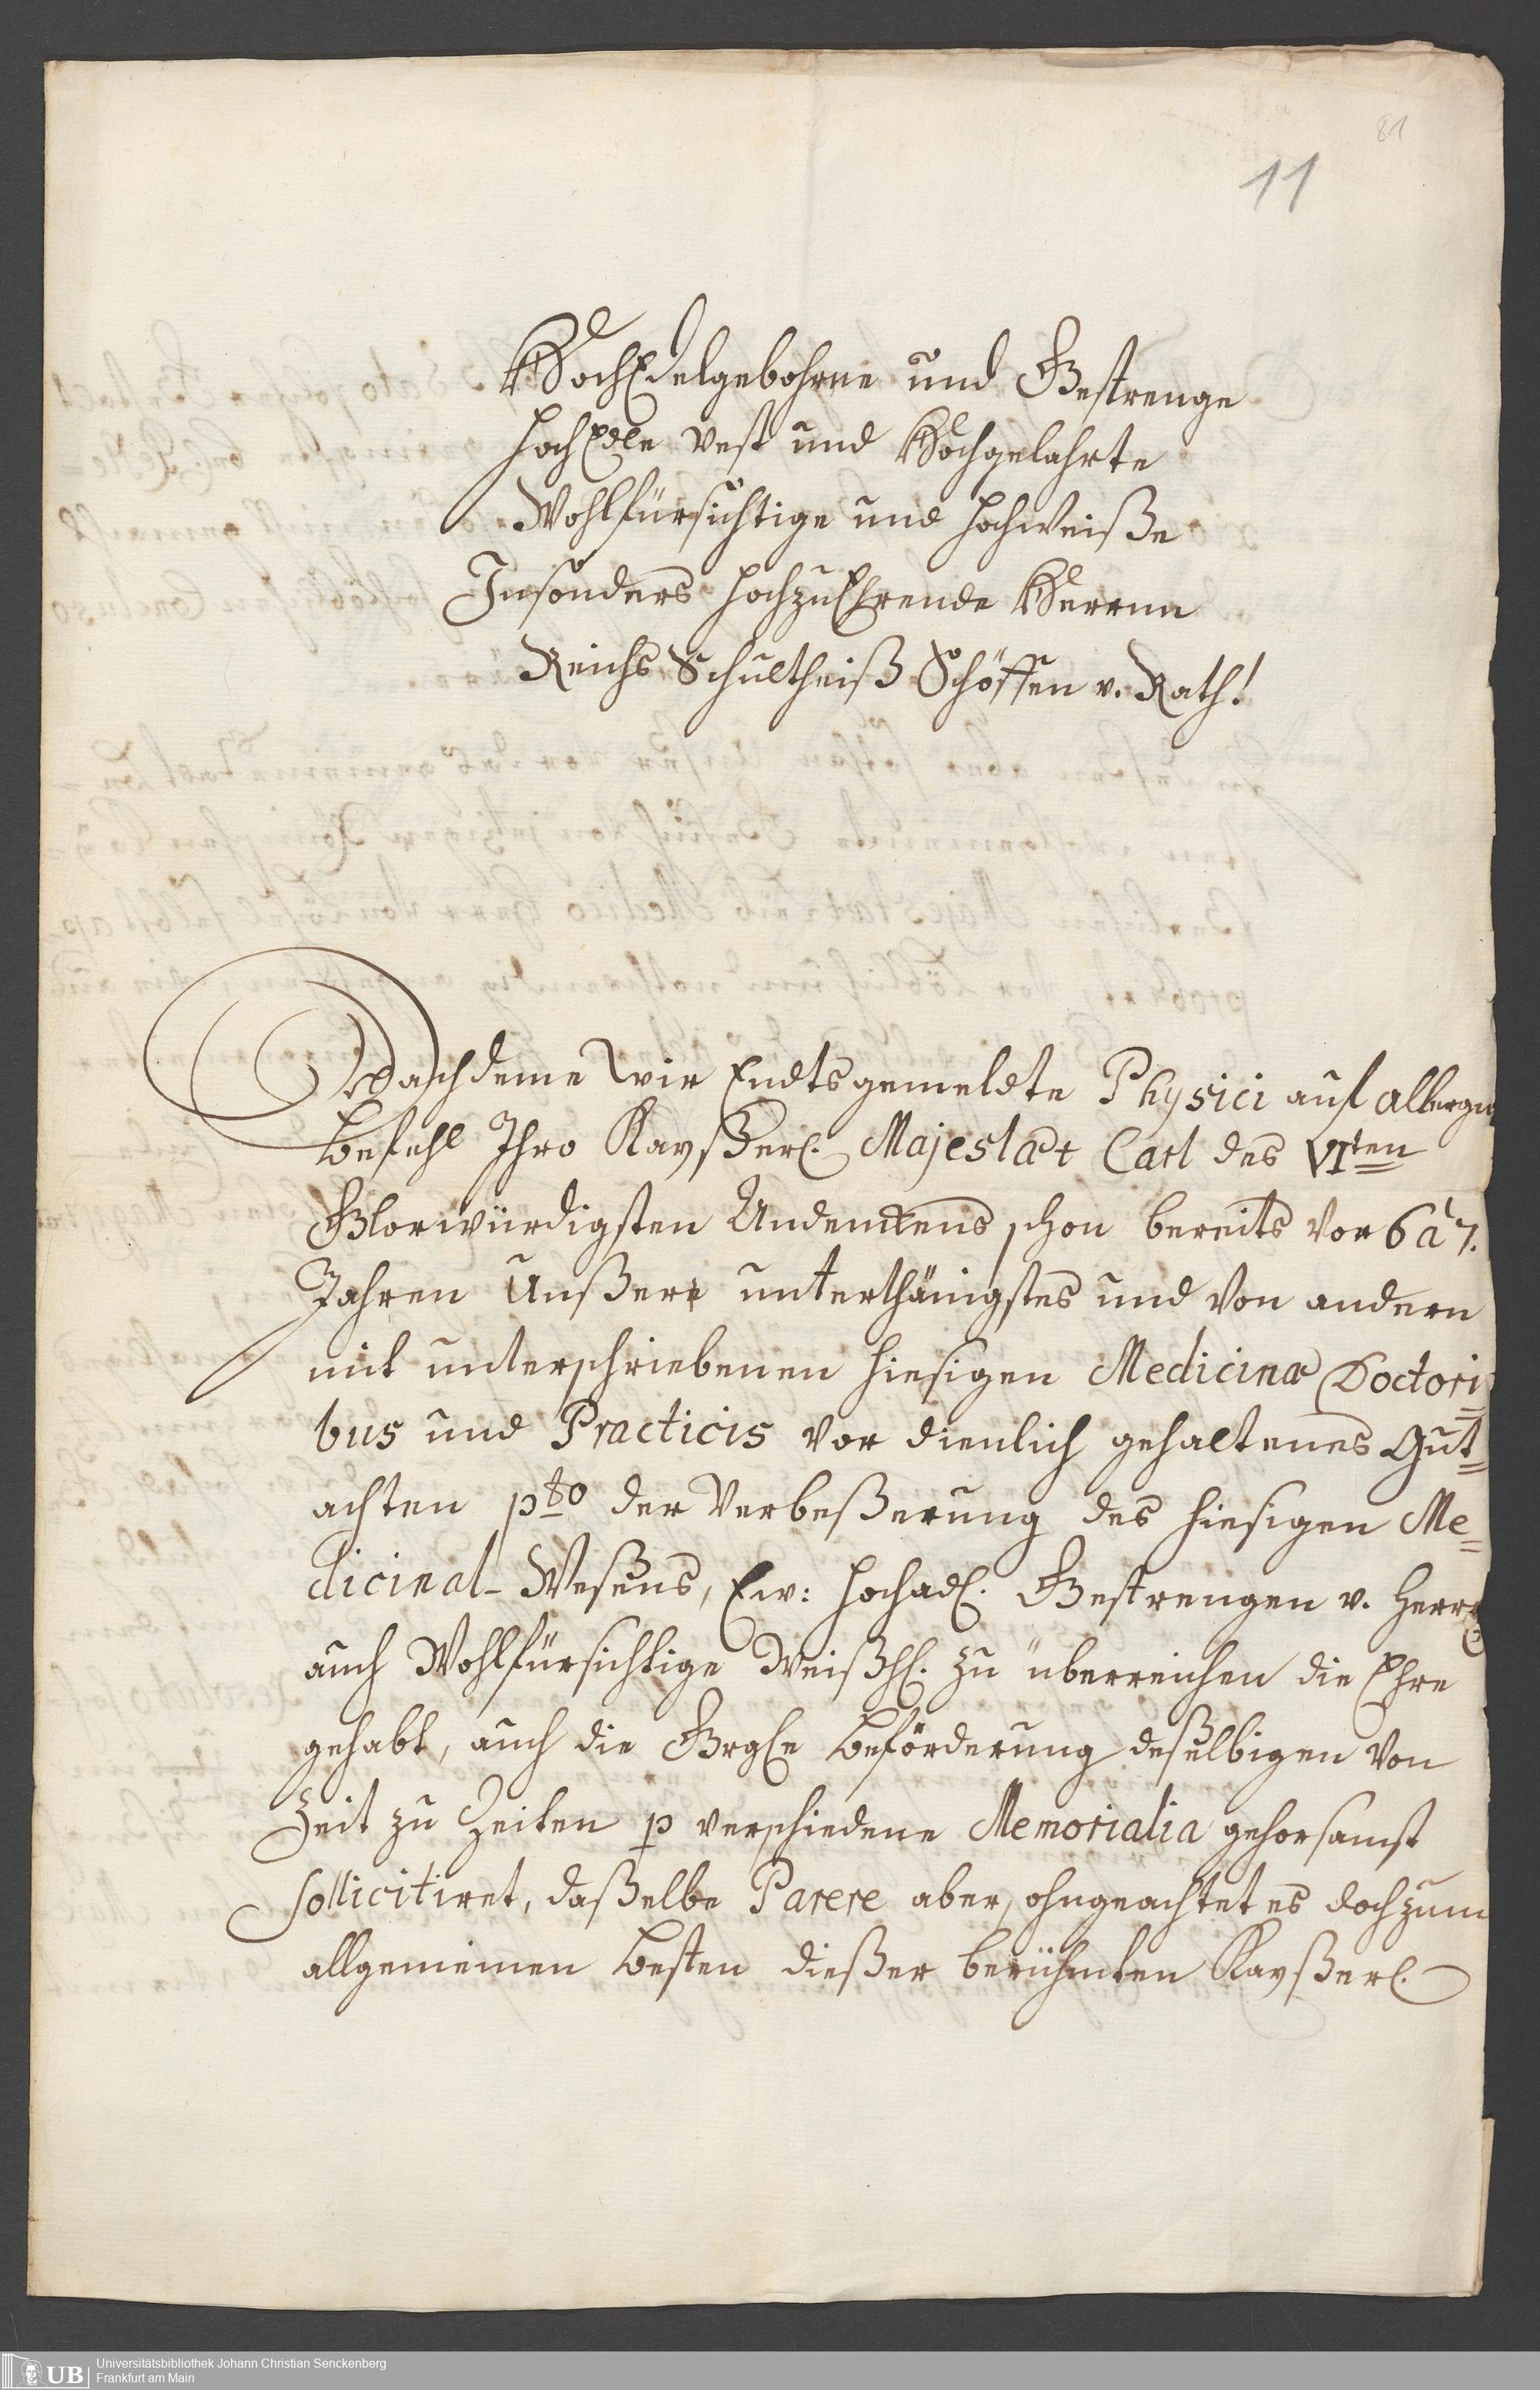 81
11
HochEdelgebohrne und Gestrenge
HochEdle Vest und Hochgelahrte
Wohlfürsichtige und hochweiße
Insonders hochzuEhrende Herren
Reichs Schultheiß Schöffen v. Rath!
Nachdeme wir Endtsgemeldte Physici auf allergn
Befehl Ihro Kayßerl. Majestæt Carl des VIten
Glorwürdigsten Andenckens schon bereits vor 6 à 7.
Jahren Unßere unterthänigstes und von andern
mit unterschriebenen hiesigen Medicinæ Doctori=
bus und Practicis vor dienlich gehaltenes Gut=
achten pto der Verbeßerung des hiesigen Me=
dicinal-Weßens, Ew: Hochadl. Gestrengen v. Herrl
auch Wohlfürsichtige Weißh. zu überreichen die Ehre
gehabt, auch die Beförderung deßelbigen von
Zeit zu Zeiten p verschiedene Memorialia gehorsamst
sollicitiret, daßelbe Parere aber, ohngeachtet es doch zum
allgemeinen Besten dießer berühmten Kayßerl.
UB
Universitätsbibliothek Johann Christian Senckenberg
Frankfurt am Main